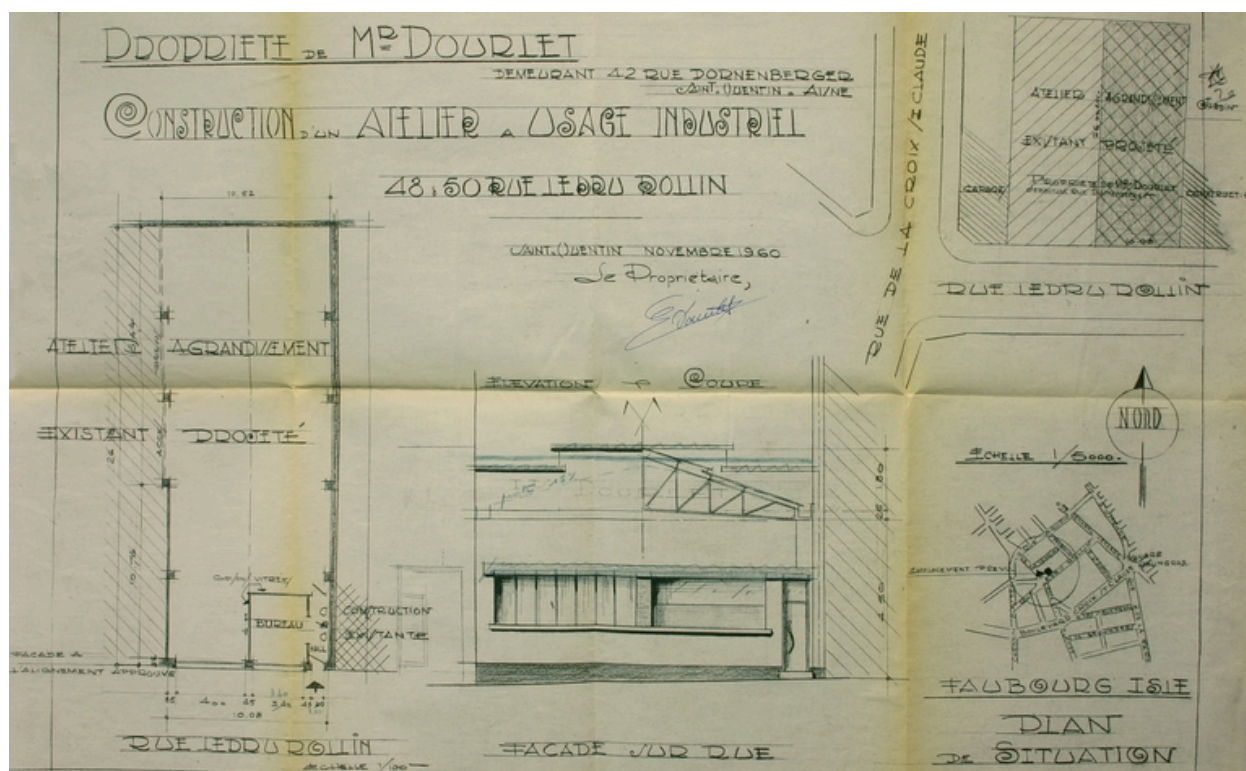 PROPRIETE DE MR DOURLET
DEMEURANT 42 RUE DORNENBERGER
SAINT.QUENTIN . AISNE
CONSTRUCTION D'UN ATELIER A USAGE INDUSTRIEL
48.50 RUE LEDRU ROLLIN
SAINT.QUENTIN NOVEMBRE 1960
Le Propriétaire,
10.52
ATELIER AGRANDISSEMENT
EXISTANT PROJETÉ
26
10.76
CLOISON VITREE
BUREAU
HALL
CONSTRUCTION
EXISTANTE
FACADE A
L'ALIGNEMENT APPROUVÉ
4.00
10.08
RUE LEDRU ROLLIN
ECHELLE 1/100
ELEVATION COUPE
4.50
FACADE SUR RUE
RUE DE LA CROIX St CLAUDE
ATELIER AGRANDISSEMENT
EXISTANT PROJETÉ
PROPRIETE DE Mr DOURLET
10.08
RUE LEDRU ROLLIN
NORD
ECHELLE 1/5000.
EMPLACEMENT PREVU
FAUBOURG ISLE
PLAN
DE SITUATION